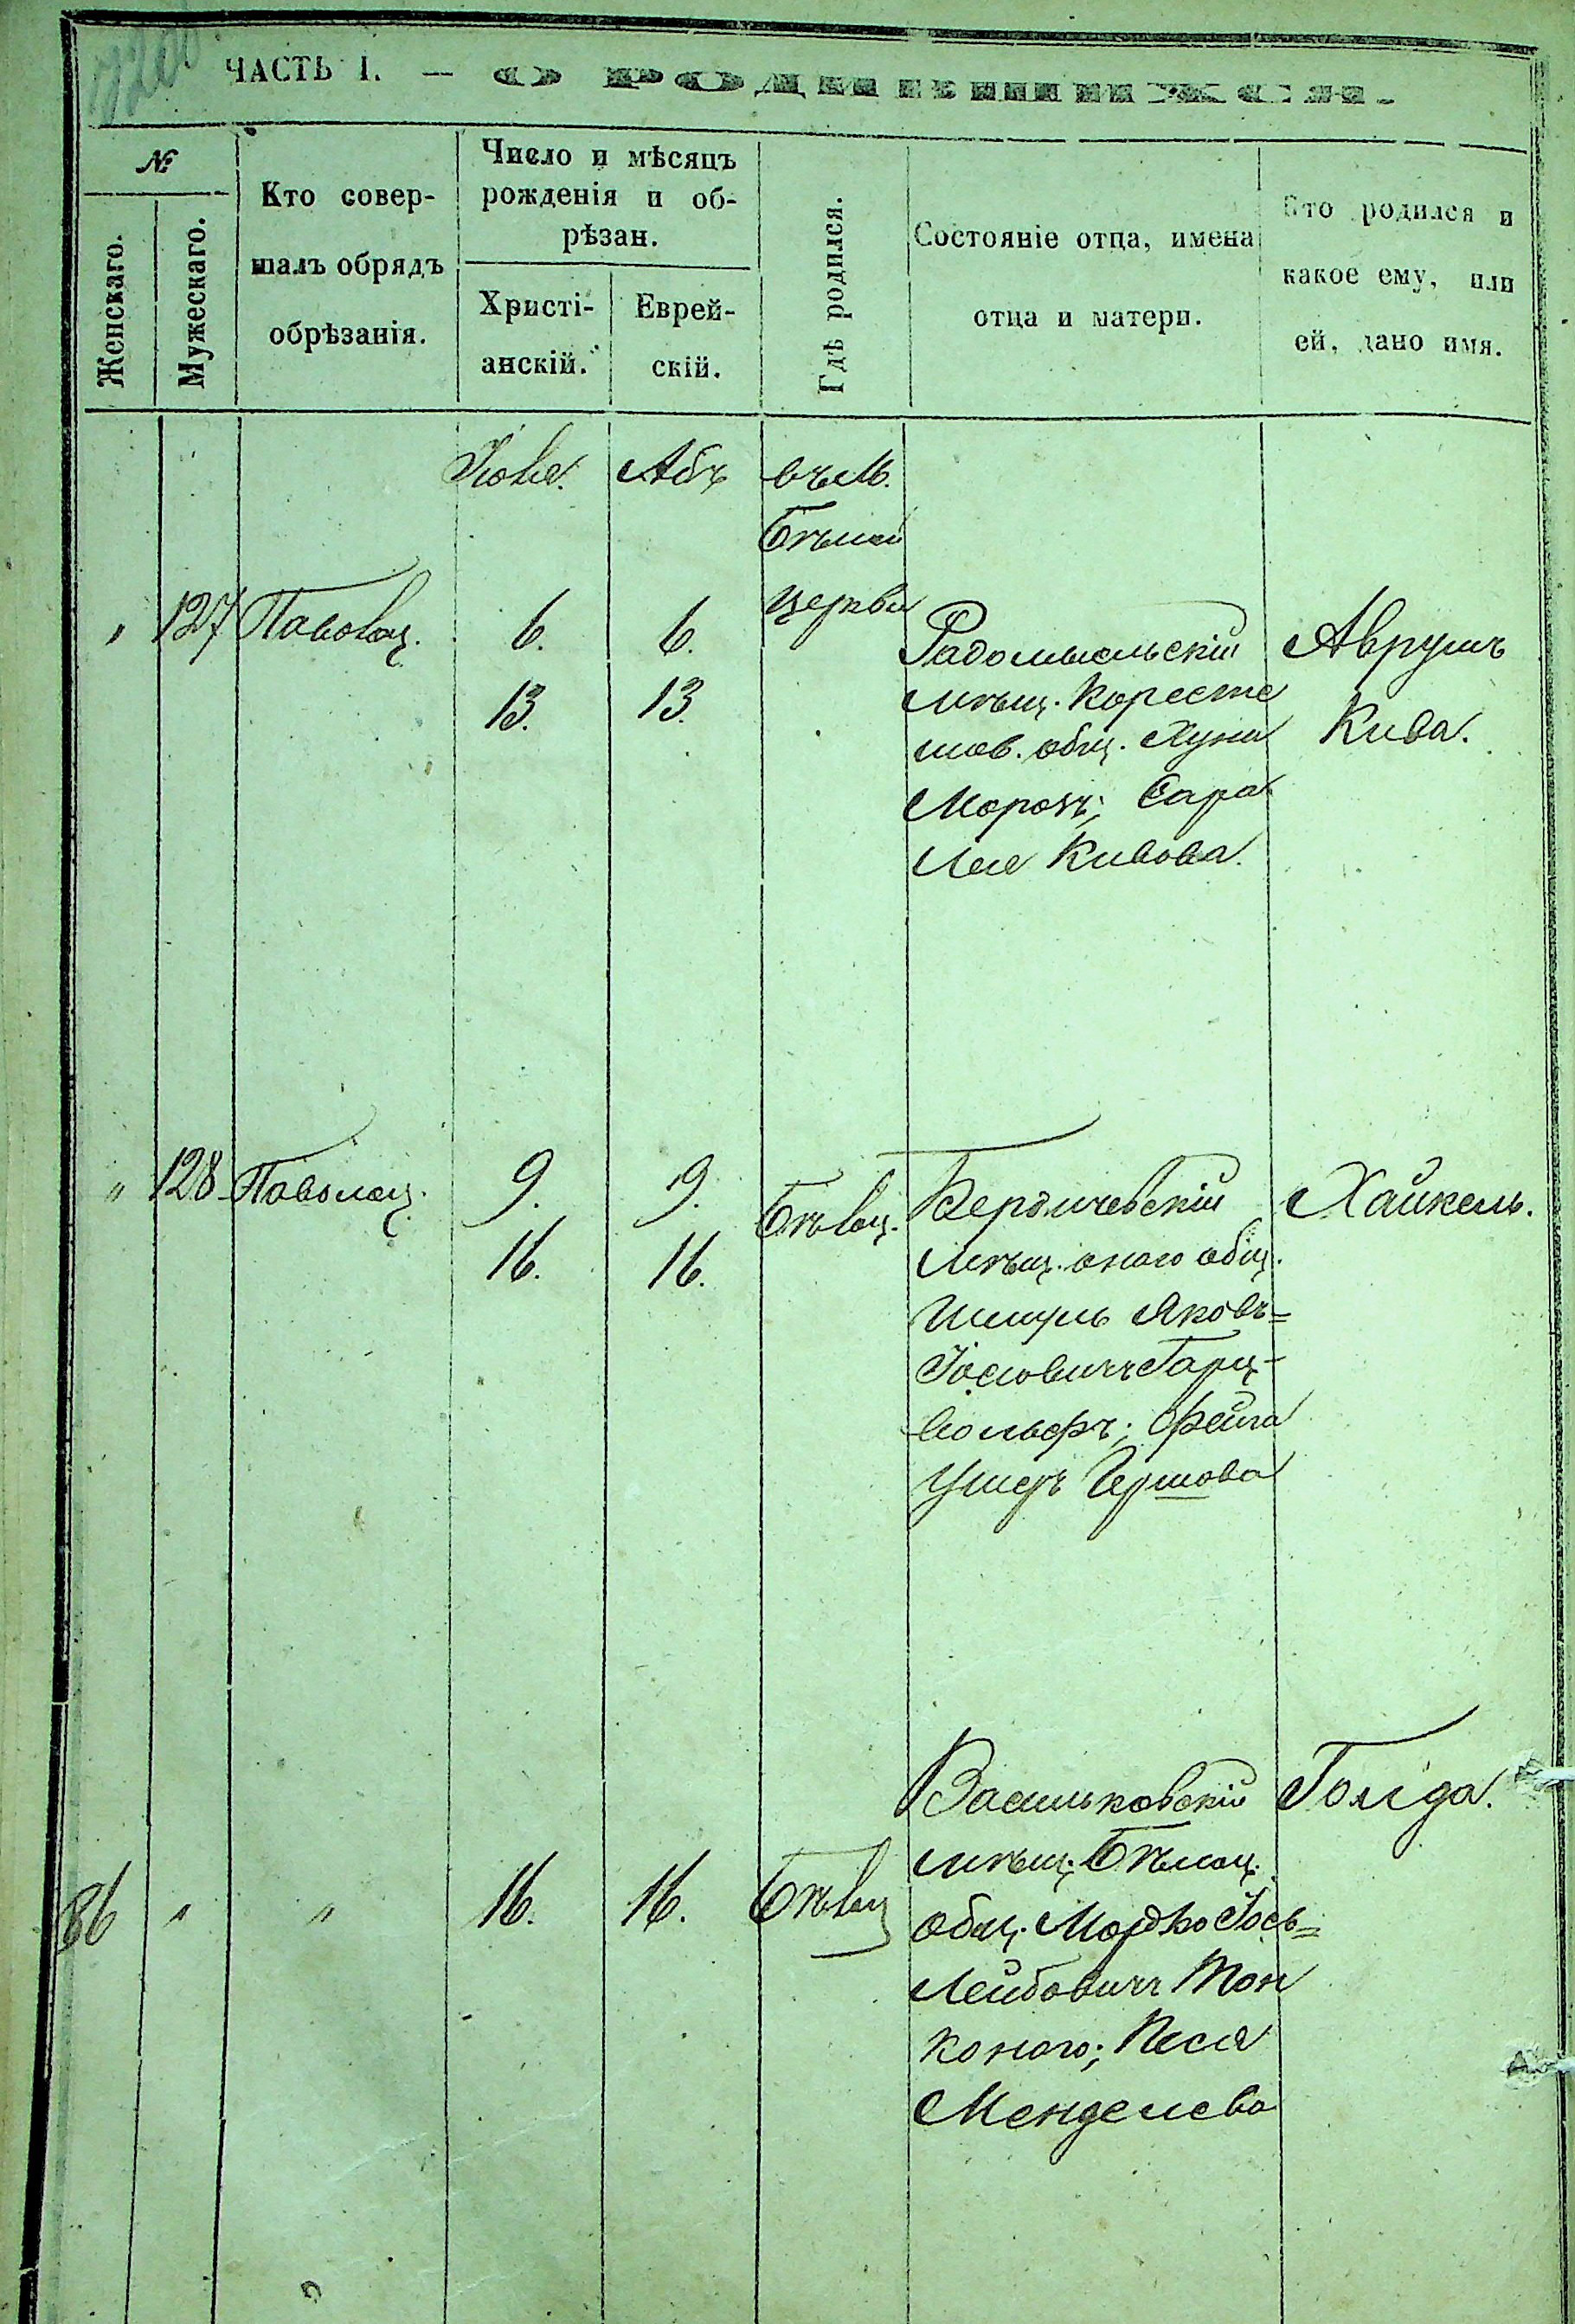 ЧАСТЬ I. — О РОДИВШИХСЯ.
№
Женскаго.
Мужескаго.
Кто совер-
шалъ обрядъ
обрѣзанія.
Число и мѣсяцъ
рожденія и об-
рѣзан.
Христі-
анскій.
Еврей-
скій.
Гдѣ родился.
Состояніе отца, имена
отца и матери.
Кто родился и
какое ему, или
ей, дано имя.
Абъ
въ М.
Бѣлой
Церкви
127
6.
13.
6.
13.
Радомысльскій
мѣщ. Коросте
шов. общ. Хуна
Морозъ; Сара
Лея Кивова.
Аврумъ
Кива.
"
128
Паволоц.
9.
16.
9.
16.
Бердичевскій
мѣщ. оного общ.
Шмуль Яковъ=
Іосіовичъ Гарц-
вольфъ; Фейга
Ушеръ Гершова
Хайкель.
86
"
"
16.
16.
Васильковскій
мѣщ. Бѣлоц.
общ. Мордко Іось=
Лейбовичъ Тон
коного; Песя
Менделева
Голда.